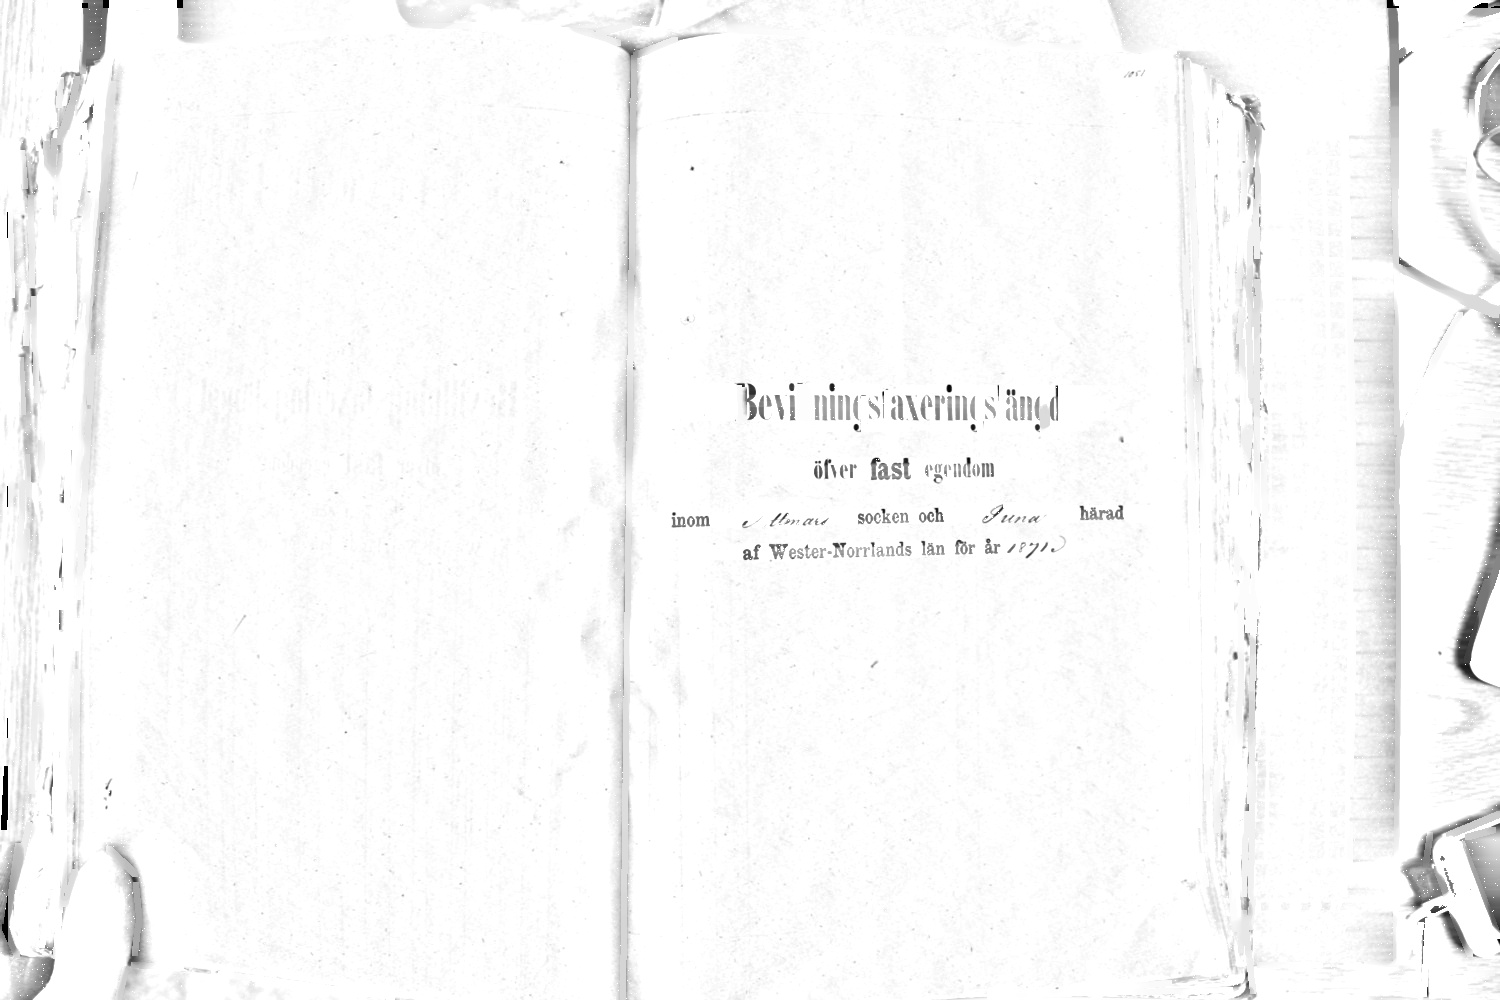 1051
Bevillningstaxeringslängd
öfver fast egendom
inom Attmars socken och Juna härad
af Wester-Norrlands län för år 1871